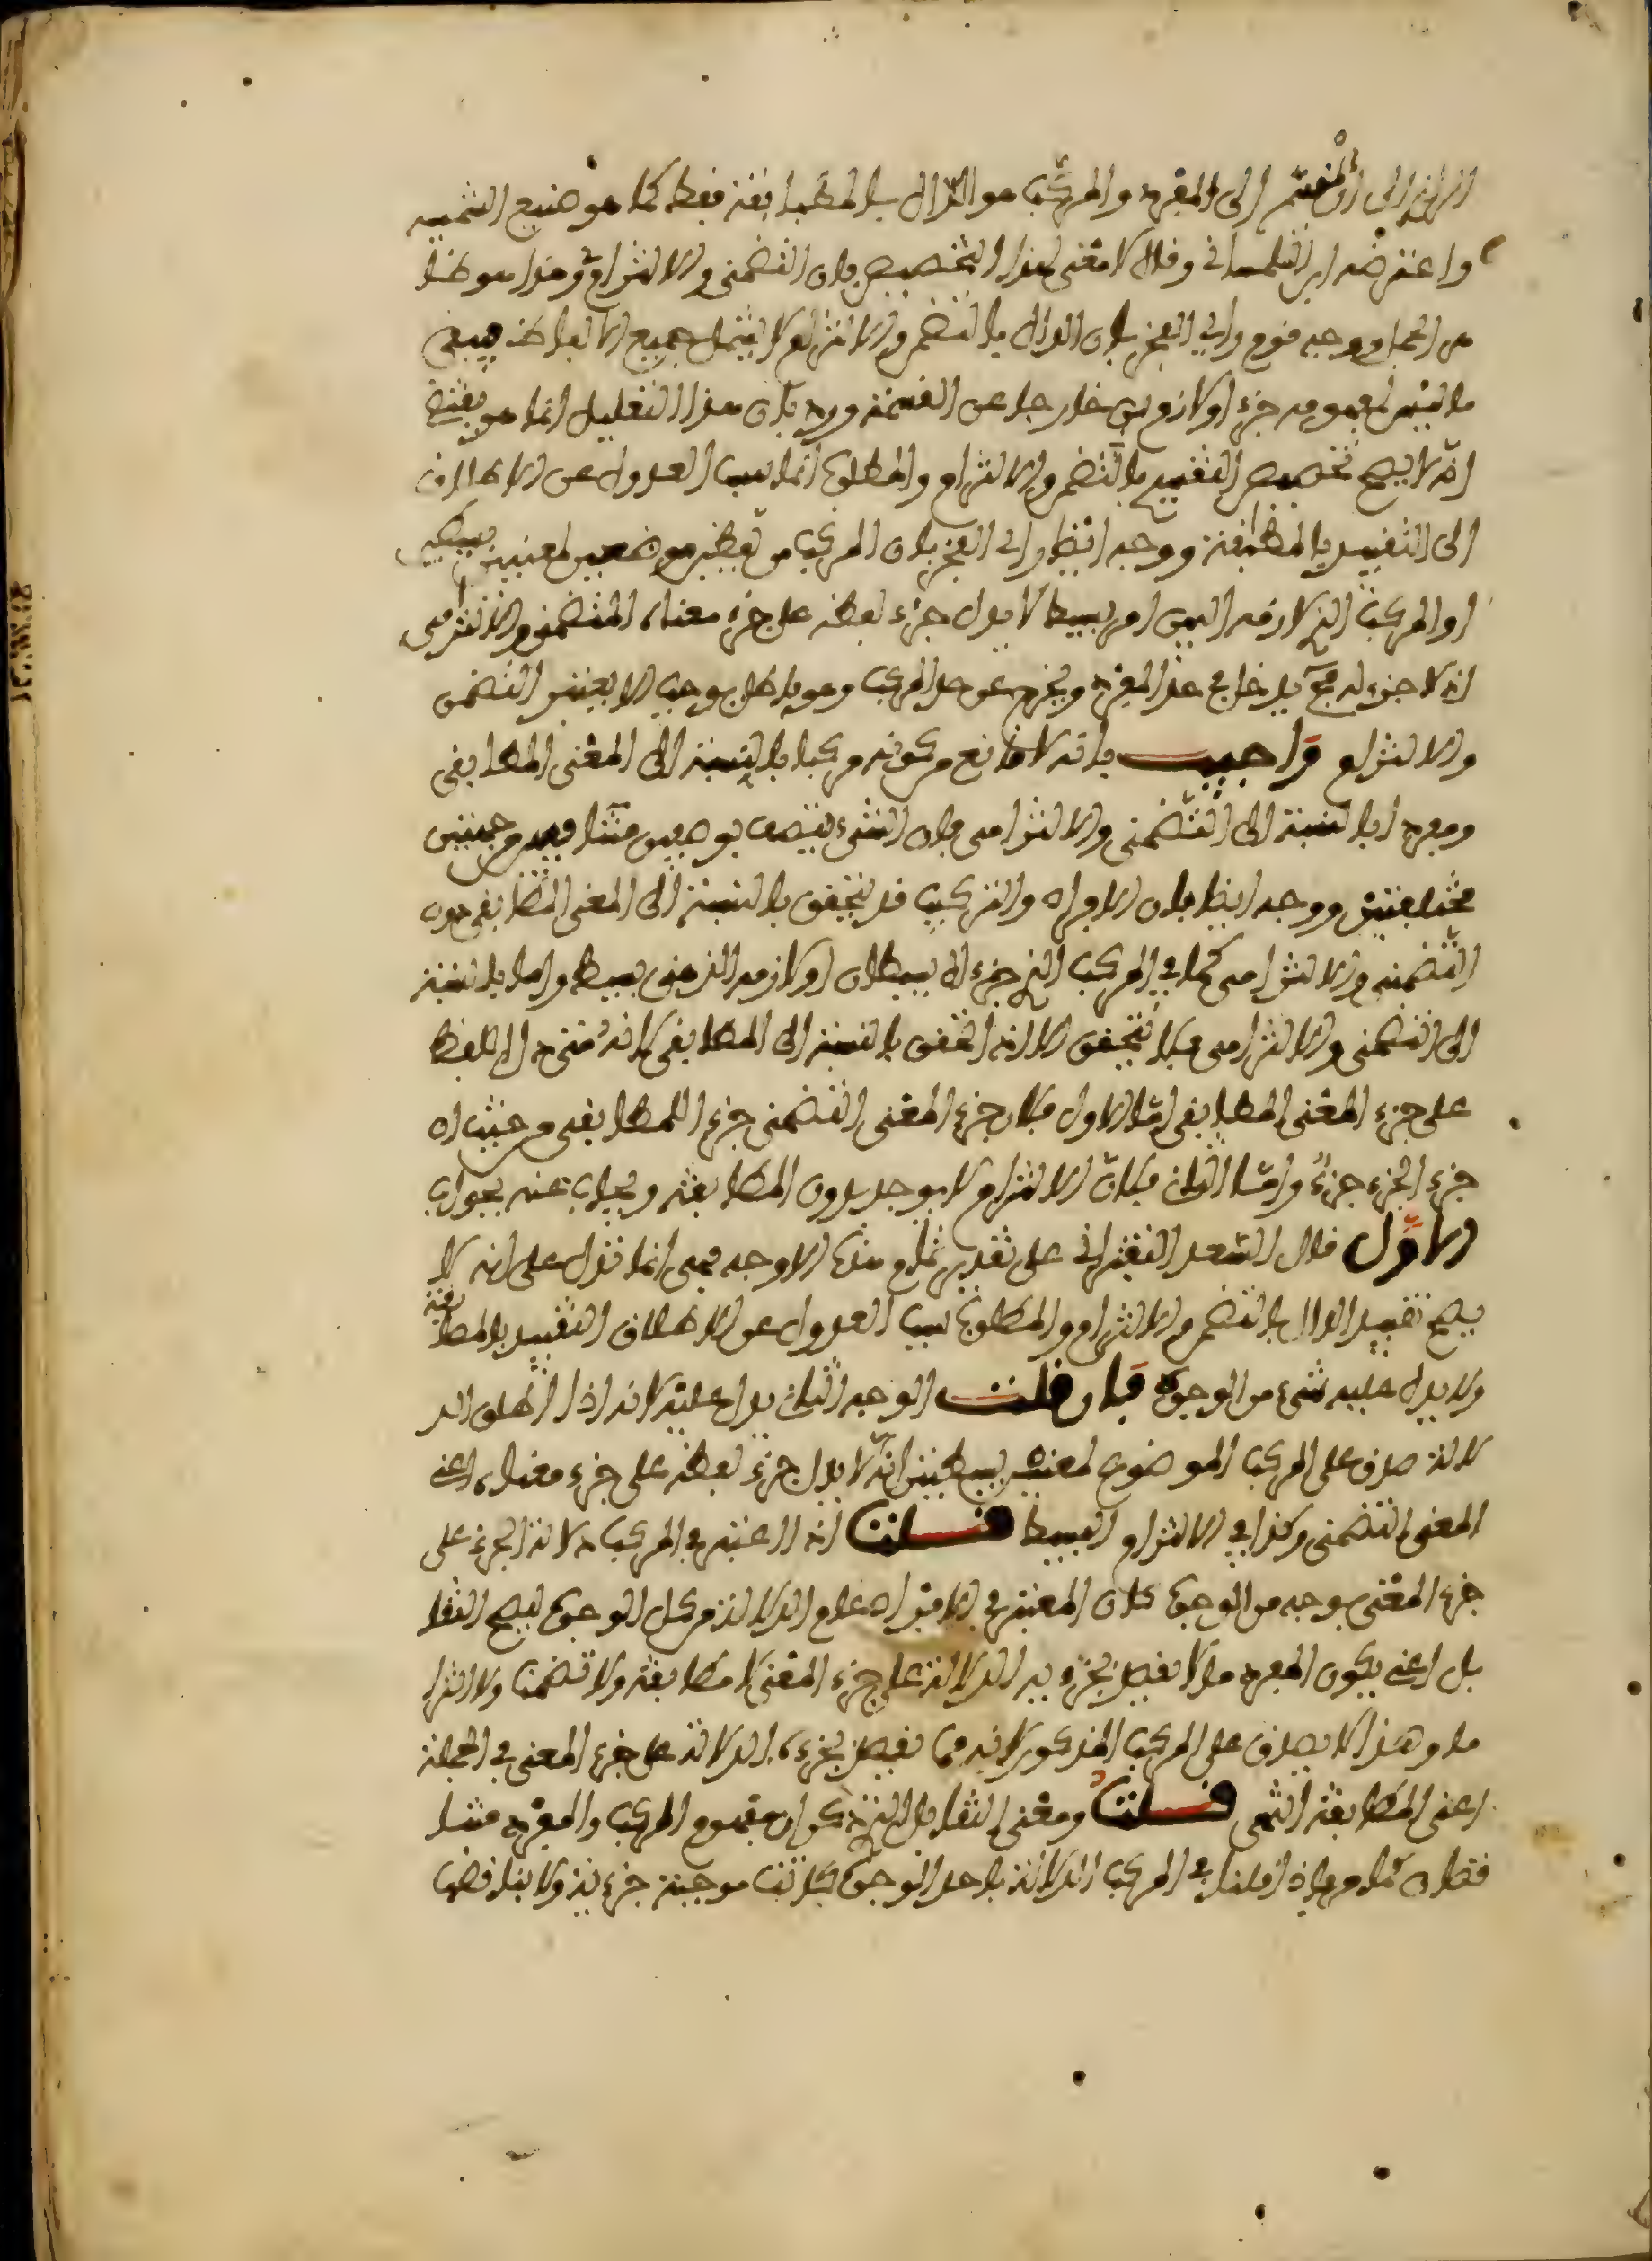 الى أن المنقسم إلى المفرد والمركب هو الدال بالمطابقة فقط كما هو صنيع الشمسية
واعترضه ابن التلمساني وقال لا معنى لهذا التخصيص فإن التضمني والالتزامي وهذا هو
ووجه قوم الفخر بأن الدال بالتضمن والالتزام لا يشمل جميع الألفاظ فيبقى
ما ليس لمفهومه جزء أو لازم بين خارجا عن القسمة ورد بأن هذا التعليل إنما هو يقتضي
أنه لا يصح تخصيص التقسيم بالتضمن والالتزام والمطلوب إنما سبب العدول عن الإطلاق
إلى التقييد بالمطابقة ووجه أيضا الفخر بأن المركب من لفظين موضوعين لمعنيين بسيطين
أو المركب الذي لازمه البين أمر بسيط لا يدل جزء لفظه على جزء معناه التضمني والالتزامي
إذ لا جزء له فيدخل في حد المفرد ويخرج عن حد المركب وهو باطل يوجب ألا يعتبر التضمن
والالتزام وأجيب بأنه لا مانع من كونه مركبا بالنسبة إلى المعنى المطابقي
ومفردا بالنسبة إلى التضمني والالتزامي فإن الشيء يتصف بوصفين متنافيين من جهتين
مختلفتين ووجه أيضا بأن الإفراد والتركيب قد يتحقق بالنسبة إلى المعنى المطابقي دون
التضمني والالتزامي كما في المركب الذي جزءاه بسيطان أو لازمه الذهني بسيط وأما بالنسبة
إلى التضمني والالتزامي فلا يتحقق إلا إذا تحقق بالنسبة إلى المطابقي لأنه متى دل اللفظ
على جزء المعنى المطابقي أما الأول فلأن جزء المعنى التضمني جزء للمطابقي من حيث إن
جزء الجزء جزء وأما الثاني فلأن الالتزام لا يوجد بدون المطابقة ويجاب عنه بجواب
الأول قال السعد التفتزاني على تقدير تمام هذه الأوجه فهي إنما تدل على أنه لا
يصح تقييد الدال بالتضمن والالتزام والمطلوب سبب العدول عن الإطلاق للتقييد بالمطابقة
ولا يدل عليه شيء من الوجوه فإن قلت الوجه الثاني يدل عليه لأنه إذا أطلق الد
لالة صدق على المركب الموضوع لمعنيين بسيطين أنه لا يدل جزء لفظه على جزء معناه أعني
المعنى التضمني وكذا في الالتزام البسيط قلت إذا اعتبر في المركب دلالة الجزء على
جزء المعنى بوجه من الوجوه كان المعتبر في الإفراد عدم الدلالة من كل الوجوه ليصح التقا
بل أعني يكون المفرد ما لا يقصد بجزء منه الدلالة على جزء المعنى لا مطابقة ولا تضمنا ولا التزا
ما وهذا لا يصدق على المركب المذكور لأنه مما يقصد بجزءه الدلالة على جزء المعنى في الجملة
أعني المطابقة انتهى قلت ومعنى التقابل الذي ذكر أن مفهوم المركب والمفرد متنا
قضان فإذا قلنا في المركب الدلالة بأحد الوجوه كانت موجبة جزئية ولا يناقضها